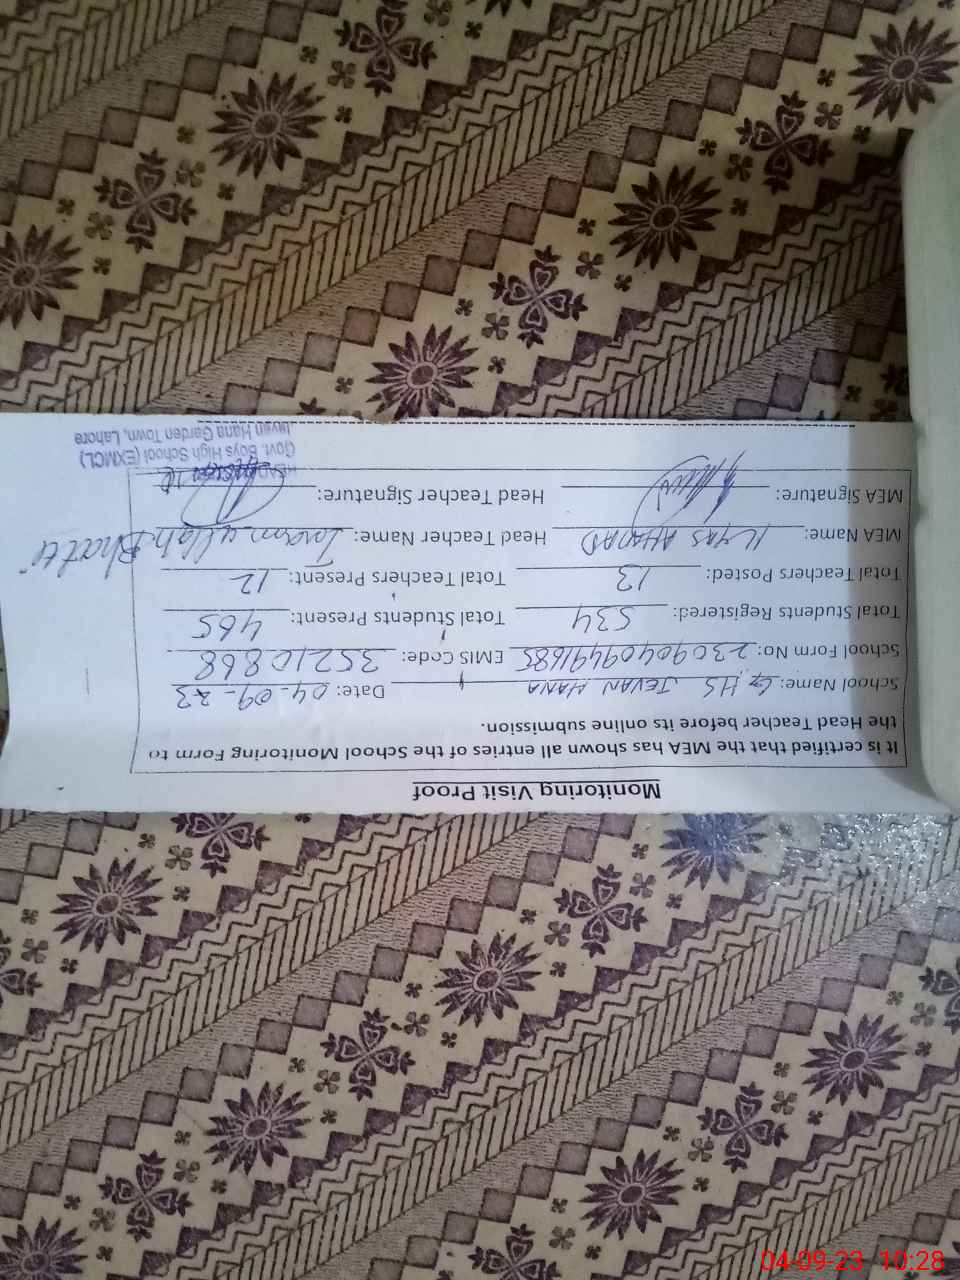 Monitoring Visit Proof
It is certified that the MEA has shown all entries of the School Monitoring Form to
the Head Teacher before its online submission.
School Name: G.H.S JEVAN HANA Date: 04-09-23
School Form No: 2309040949168S EMIS Code: 35210868
Total Students Registered: 534 Total Students Present: 465
Total Teachers Posted: 13 Total Teachers Present: 12
MEA Name: ILYAS AHMAD Head Teacher Name: Inam ullah Bhatti
MEA Signature: Head Teacher Signature:
HEAD
Govt. Boys High School (EXMCL)
Jevan Hana Garden Town, Lahore
04-09-23 10:28